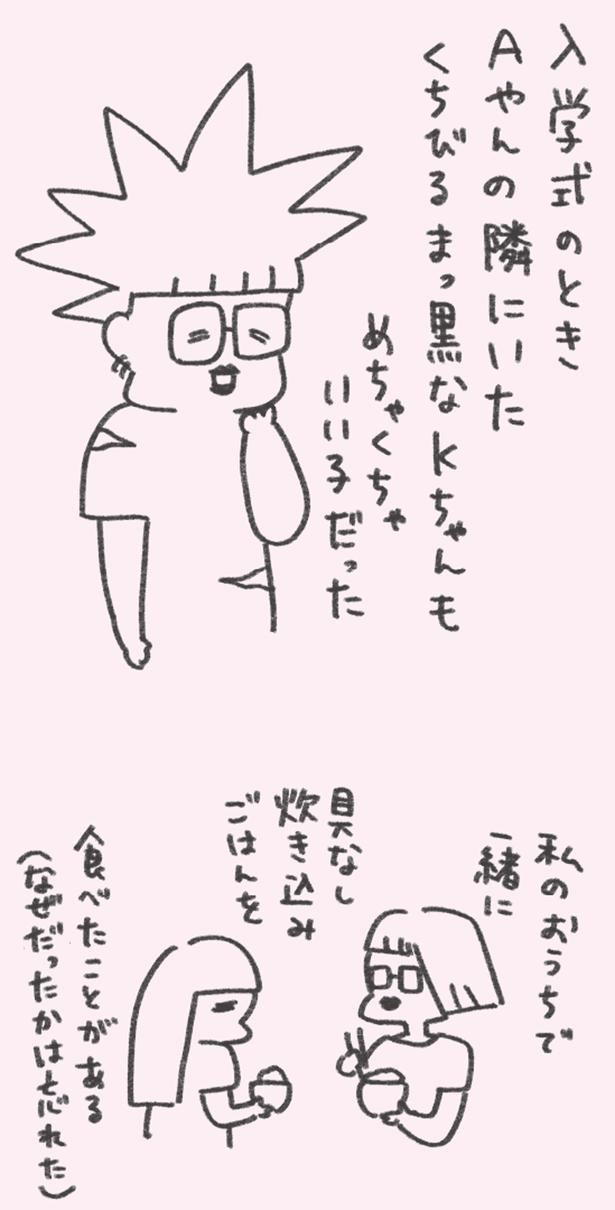 入学式のとき
Aやんの隣にいた
くちびるまっ黒なKちゃんも
めちゃくちゃ
いい子だった
私のおうちで
一緒に
具なし
炊き込み
ごはんを
食べたことがある
(なぜだったかは忘れた)